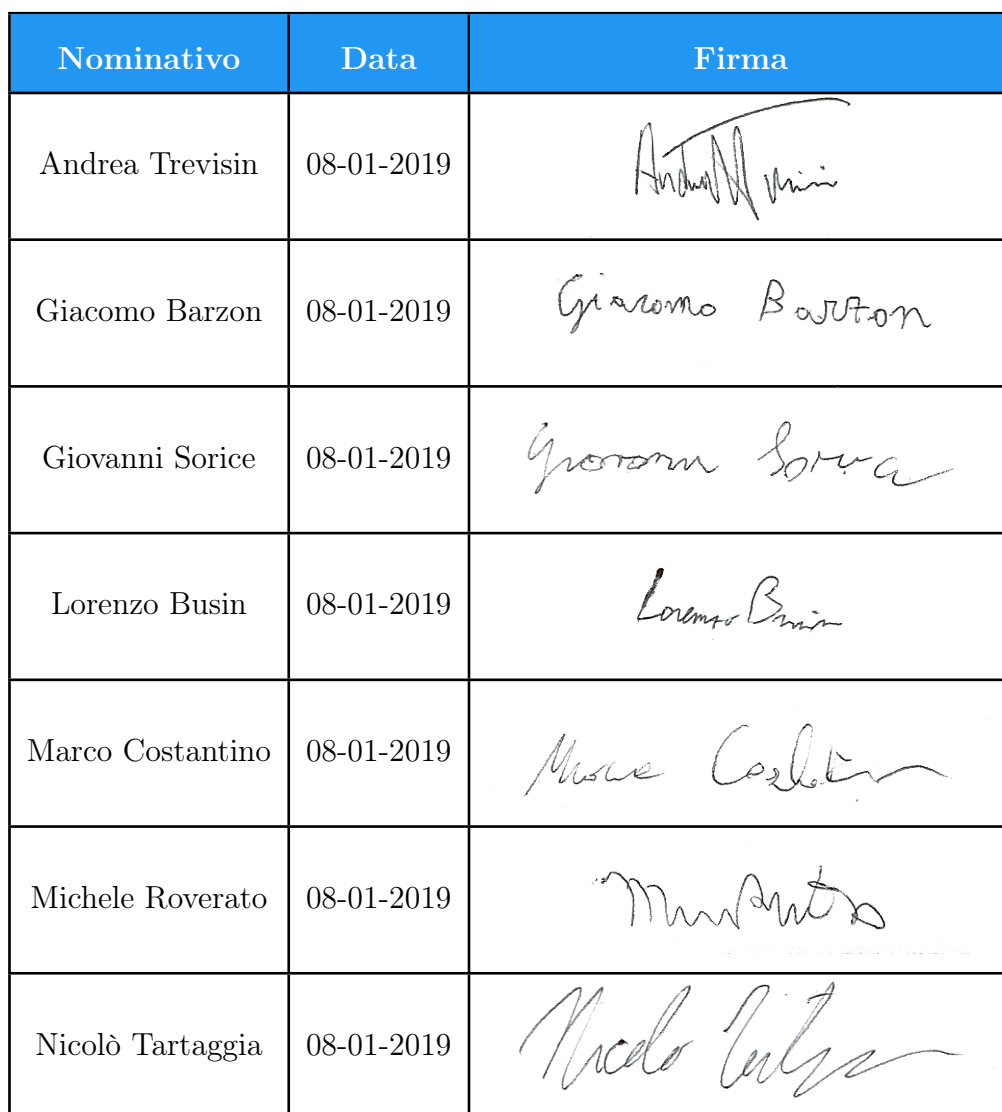 Nominativo Data Firma
Andrea Trevisin 08-01-2019
Giacomo Barzon 08-01-2019 Giacomo Barzon
Giovanni Sorice 08-01-2019
Lorenzo Busin 08-01-2019 Lorenzo Busin
Marco Costantino 08-01-2019
Michele Roverato 08-01-2019
Nicolò Tartaggia 08-01-2019 Nicolo